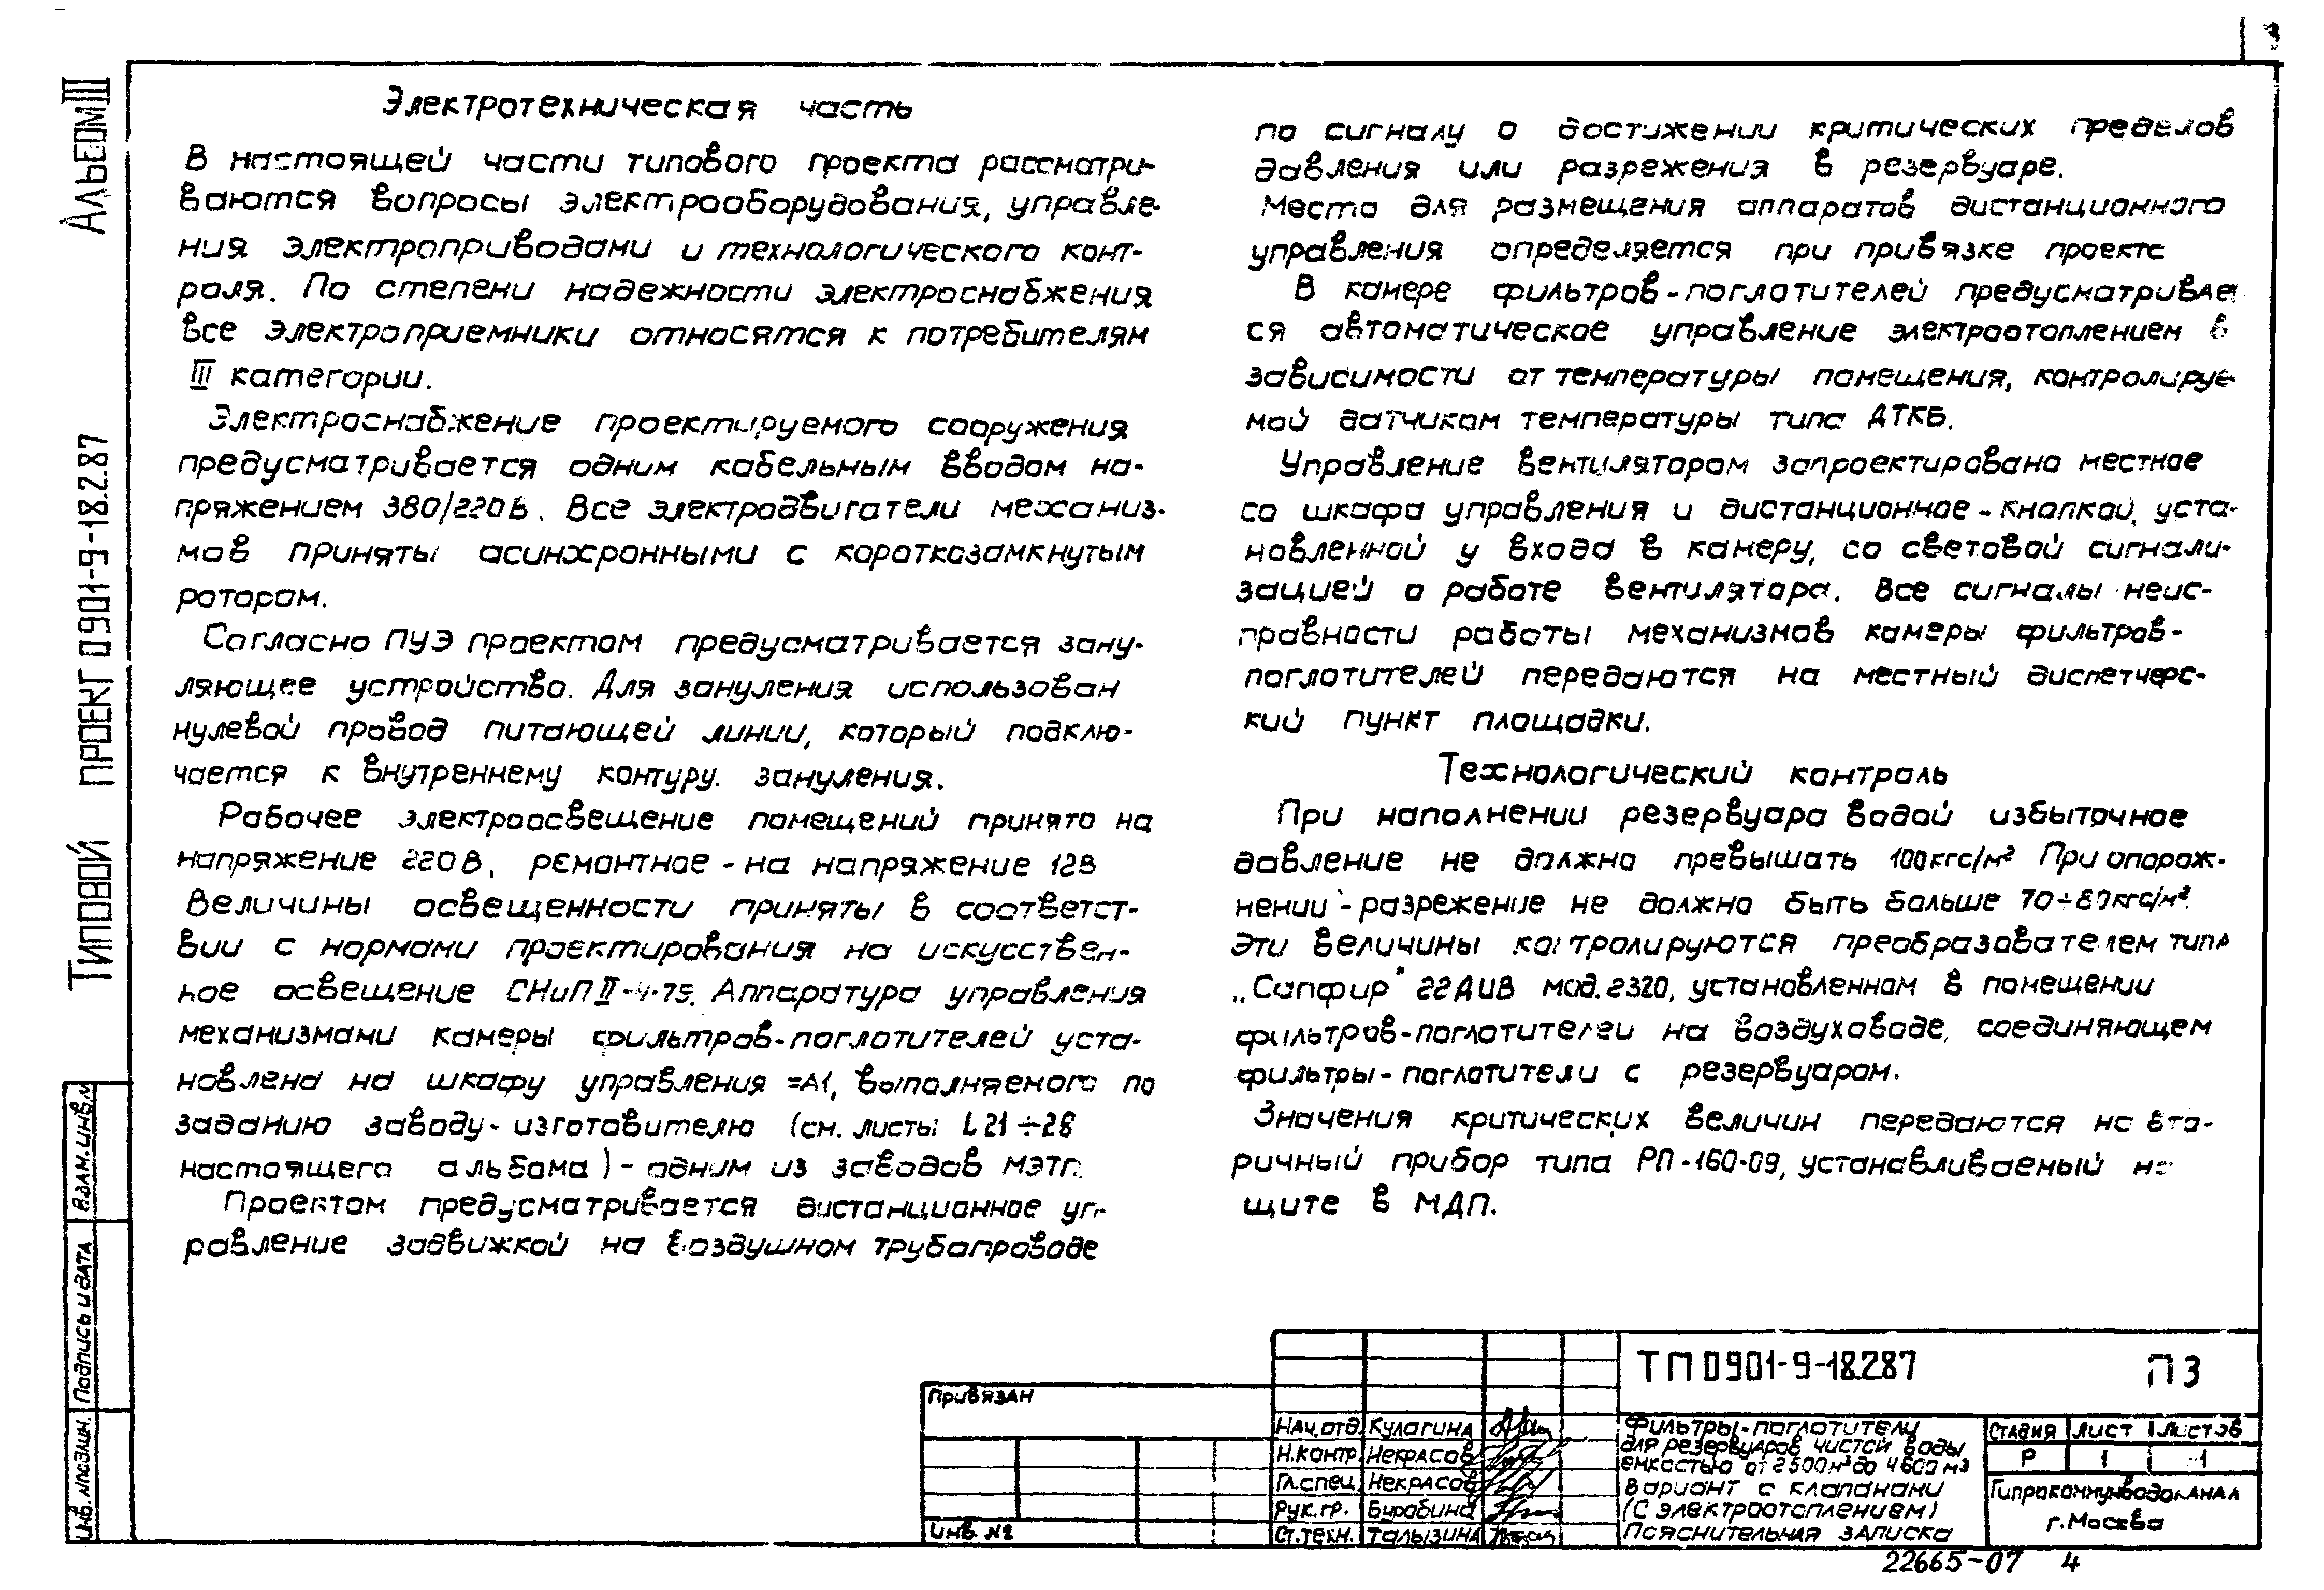 3
Альбом III
Типовой проект 0901-9-18.2.87
Электротехническая часть
В настоящей части типового проекта рассматри-
ваются вопросы электрооборудования, управле-
ния электроприводами и технологического конт-
роля. По степени надежности электроснабжения
все электроприемники относятся к потребителям
III категории.
Электроснабжение проектируемого сооружения
предусматривается одним кабельным вводом на-
пряжением 380/220В. Все электродвигатели механиз-
мов приняты асинхронными с короткозамкнутым
ротором.
Согласно ПУЭ проектом предусматривается зану-
ляющее устройство. Для зануления использован
нулевой провод питающей линии, который подклю-
чается к внутреннему контуру. зануления.
Рабочее электроосвещение помещений принято на
напряжение 220В, ремонтное - на напряжение 12В
Величины освещенности приняты в соответст-
вии с нормами проектирования на искусствен-
ное освещение СНиП II-4-79. Аппаратура управления
механизмами камеры фильтров-поглотителей уста-
новлена на шкафу управления =А1, выполняемого по
заданию заводу-изготовителю (см. листы L21÷28
настоящего альбома) - одним из заводов МЭТП.
Проектом предусматривается дистанционное уп-
равление задвижкой на воздушном трубопроводе
по сигналу о достижении критических пределов
давления или разрежения в резервуаре.
Место для размещения аппаратов дистанционного
управления определяется при привязке проекта
В камере фильтров-поглотителей предусматривает
ся автоматическое управление электроотоплением в
зависимости от температуры помещения, контролируе-
мой датчиком температуры типа ДТКБ.
Управление вентилятором запроектировано местное
со шкафа управления и дистанционное - кнопкой, уста-
новленной у входа в камеру, со световой сигнали-
зацией о работе вентилятора. Все сигналы неис-
правности работы механизмов камеры фильтров-
поглотителей передаются на местный диспетчерс-
кий пункт площадки.
Технологический контроль
При наполнении резервуара водой избыточное
давление не должно превышать 100кгс/м² При опорож-
нении - разрежение не должно быть больше 70÷80кгс/м².
Эти величины контролируются преобразователем типа
„Сапфир" 22ДИВ мод. 2320, установленном в помещении
фильтров-поглотителей на воздуховоде, соединяющем
фильтры-поглотители с резервуаром.
Значения критических величин передаются на вто-
ричный прибор типа РП-160-09, устанавливаемый на
щите в МДП.
Взам. инв. №
Подпись и дата
Инв. № подлин.
Привязан
Инв. №
Нач. отд. Кулагина
Н. контр. Некрасов
Гл. спец. Некрасов
Рук. гр. Буробина
Ст. техн. Талызина
ТП 0901-9-18.2.87 ПЗ
Фильтры-поглотители
для резервуаров чистой воды
емкостью от 2500м³ до 4600 м³
Вариант с клапанами
(с электроотоплением)
Пояснительная записка
Стадия Лист Листов
Р 1 1
Гипрокоммунводоканал
г. Москва
22665-07 4